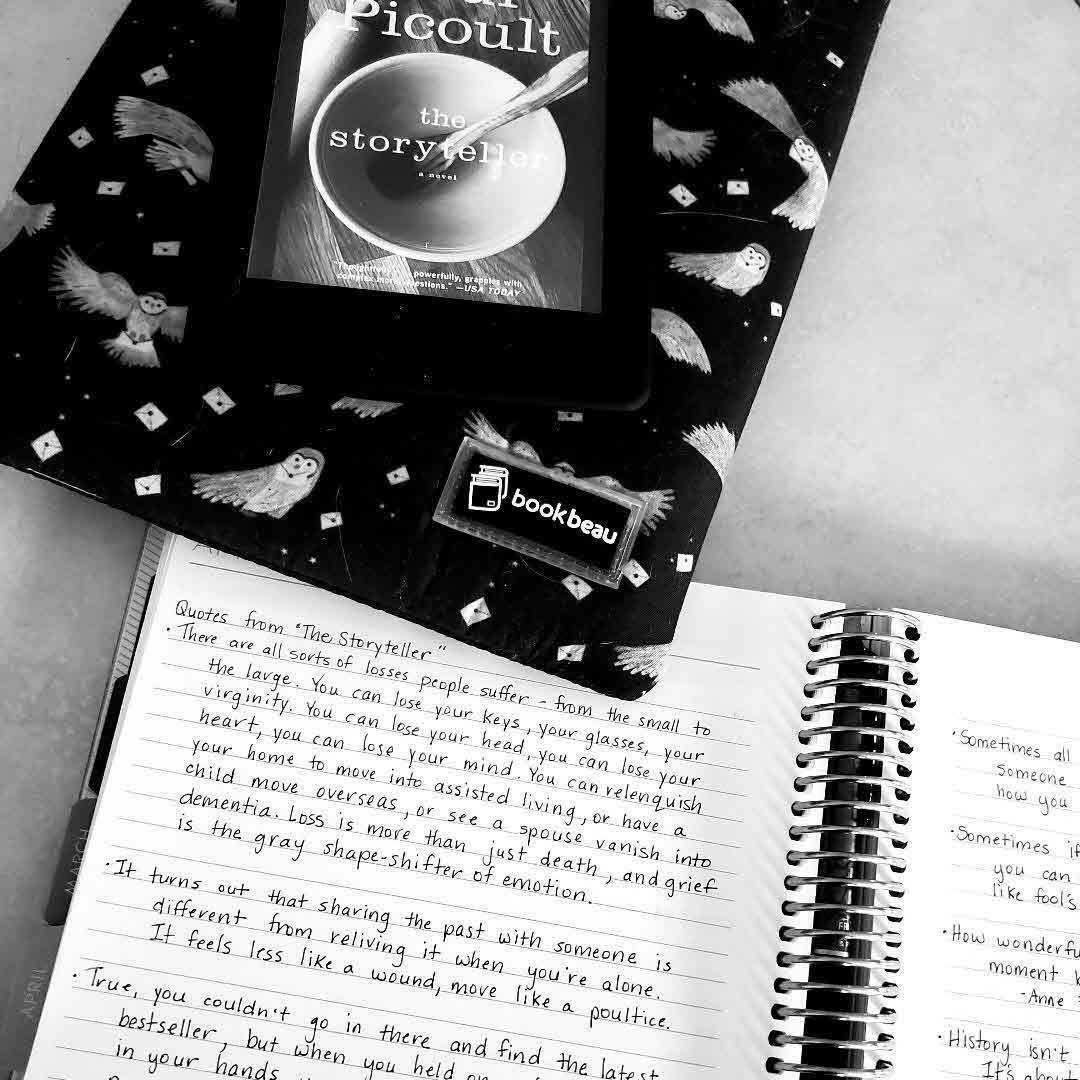 Picoult
the
storyteller
a novel
powerfully, grapples with
complex moral questions." —USA TODAY
bookbeau
Quotes from "The Storyteller"
· There are all sorts of losses people suffer - from the small to
the large. You can lose your keys, your glasses, your
virginity. You can lose your head, you can lose your
heart, you can lose your mind. You can relenquish
your home to move into assisted living, or have a
child move overseas, or see a spouse vanish into
dementia. Loss is more than just death, and grief
is the gray shape-shifter of emotion.
· It turns out that sharing the past with someone is
different from reliving it when you're alone.
It feels less like a wound, move like a poultice.
· True, you couldn't go in there and find the latest
bestseller, but when you held
in your hands
· Sometimes all
someone
how you
· Sometimes if
you can
like fool's
· How wonderfu
moment
- Anne
· History isn't
It's about
MARCH
APRIL